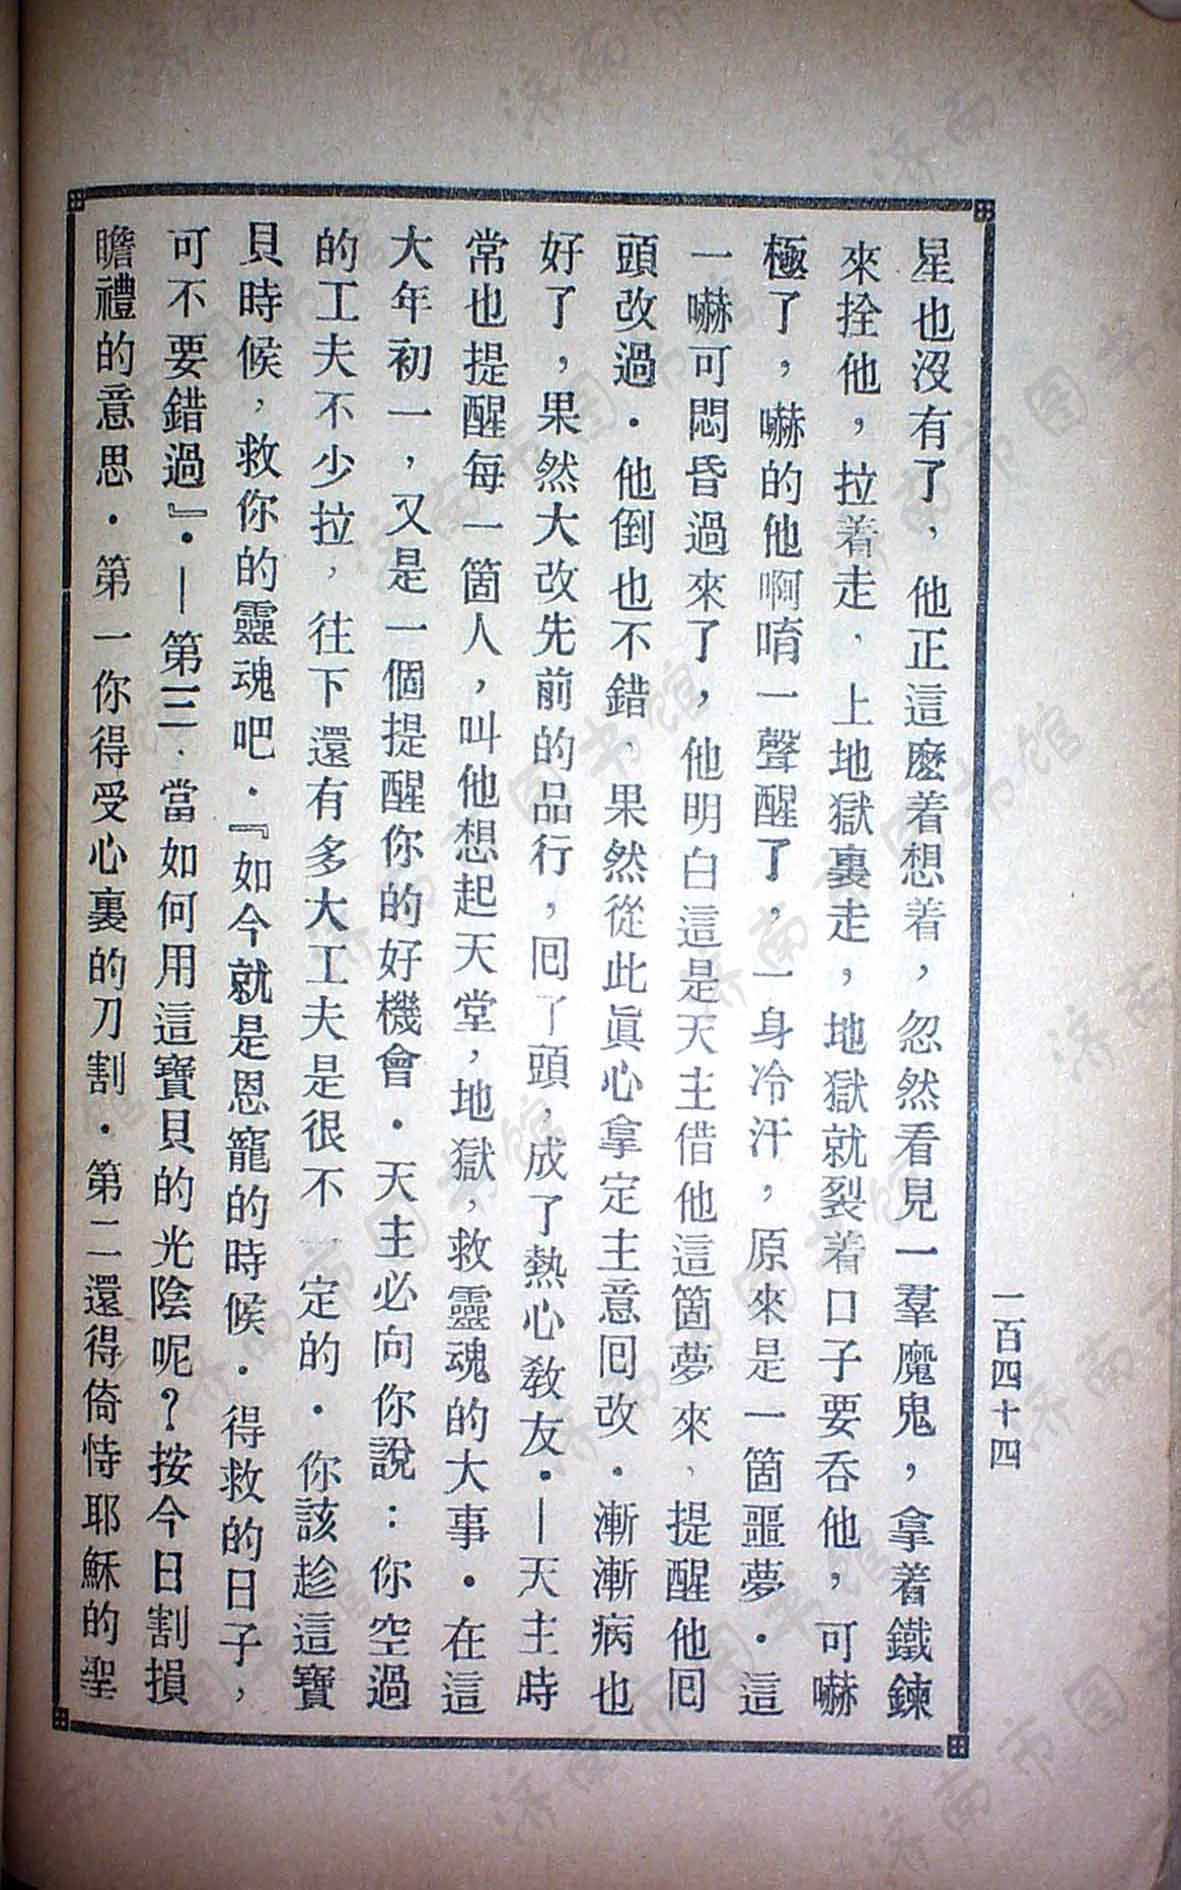 一百四十四
星也沒有了，他正這麽着想着，忽然看見一羣魔鬼，拿着鐵鍊
來拴他，拉着走，上地獄裏走，地獄就裂着口子要吞他，可嚇
極了，嚇的他啊唷一聲醒了，一身冷汗，原來是一箇噩夢．這
一嚇可悶昏過來了，他明白這是天主借他這箇夢來，提醒他囘
頭改過．他倒也不錯，果然從此眞心拿定主意囘改．漸漸病也
好了，果然大改先前的品行，囘了頭，成了熱心敎友．—天主時
常也提醒每一箇人，叫他想起天堂，地獄，救靈魂的大事．在這
大年初一，又是一個提醒你的好機會．天主必向你說：你空過
的工夫不少拉，往下還有多大工夫是很不一定的．你該趁這寶
貝時候，救你的靈魂吧．『如今就是恩寵的時候．得救的日子，
可不要錯過』．—第三，當如何用這寶貝的光陰呢？按今日割損
瞻禮的意思．第一你得受心裏的刀割．第二還得倚恃耶穌的聖
济南市图书馆